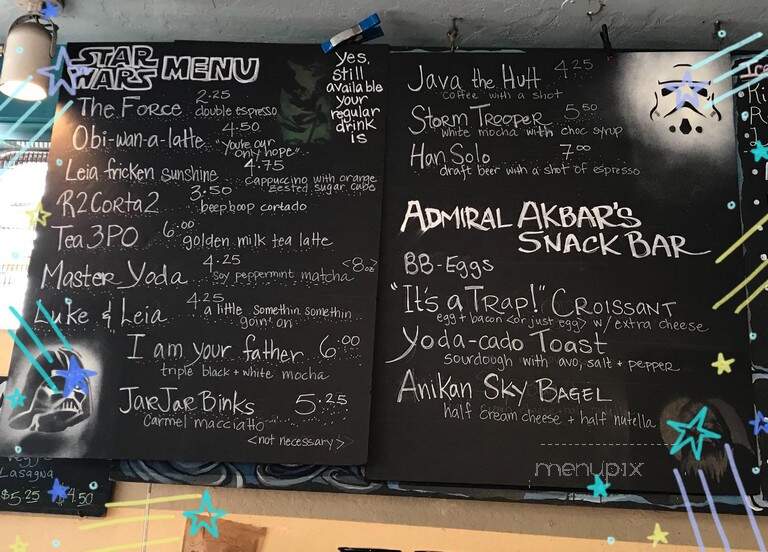 STAR WARS MENU
The Force 2.25
double espresso
Obi-wan-a-latte 4.50
"you're our only hope"
Leia fricken sunshine 4.75
cappuccino with orange zested sugar cube
R2Corta2 3.50
beep boop cortado
Tea 3PO 6.00
golden milk tea latte
Master Yoda 4.25 <8oz>
soy peppermint matcha
Luke & Leia 4.25
a little somethin somethin goin' on
I am your father 6.00
triple black + white mocha
Jar Jar Binks 5.25
Carmel macciatto
<not necessary>
Yes,
still
available
your
regular
drink
is
Java the Hutt 4.25
coffee with a shot
Storm Trooper 5.50
white mocha with choc syrup
Han Solo 7.00
draft beer with a shot of espresso
ADMIRAL AKBAR'S
SNACK BAR
BB-Eggs
"It's a Trap!" Croissant
egg + bacon <or just egg> w/ extra cheese
Yoda-cado Toast
sourdough with avo, salt + pepper
Anikan Sky Bagel
half cream cheese + half nutella
menupix
Lasagna
$5.25 $4.50